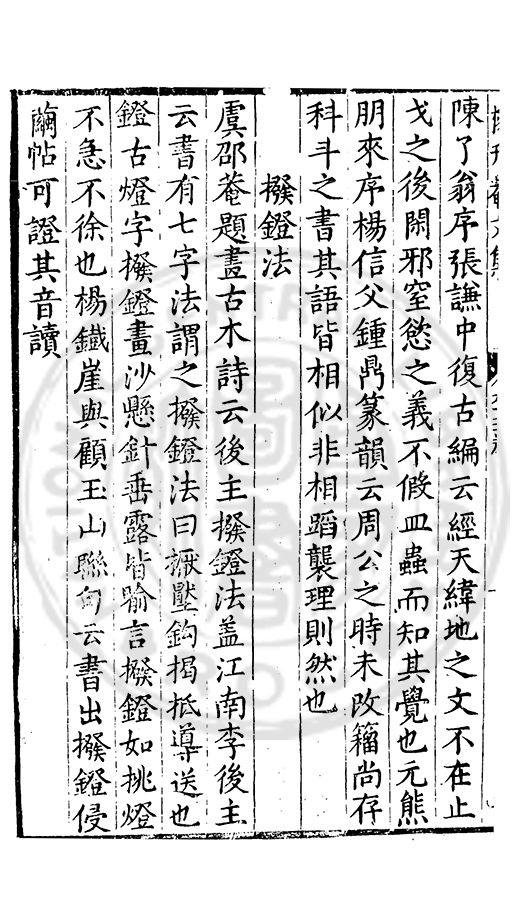 陳了翁序張謙中復古編云經天緯地之文不在止
戈之後閑邪窒慾之義不假皿蟲而知其覺也元熊
朋來序楊信父鍾鼎篆韻云周公之時未改籀尚存
科斗之書其語皆相似非相蹈襲理則然也
撥鐙法
虞邵菴題畫古木詩云後主撥鐙法蓋江南李後主
云書有七字法謂之撥鐙法曰擫壓鈎揭抵導送也
鐙古燈字撥鐙畫沙懸針垂露皆喻言撥鐙如挑燈
不急不徐也楊鐵崖與顧玉山聯句云書出撥鐙侵
繭帖可證其音讀